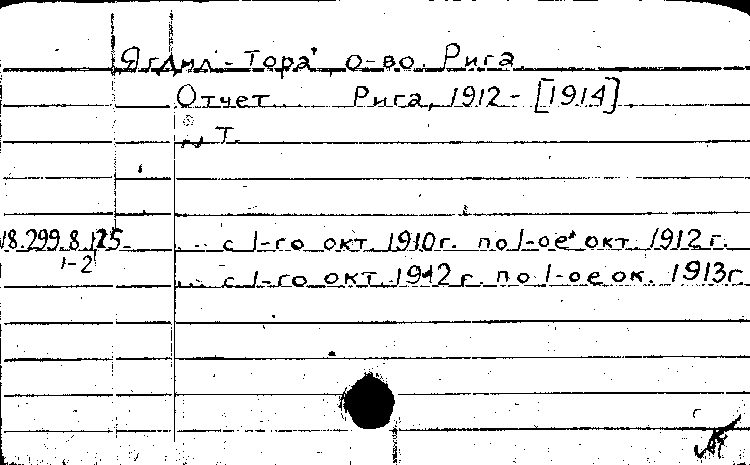 "Ягдил-Тора", о-во. Рига.
Отчет... Рига, 1912 - [1914].
Т.
18.299.8.125 ... с 1-го окт. 1910г. по 1-ое окт. 1912г.
1-2
... с 1-го окт. 1912г. по 1-ое ок. 1913г